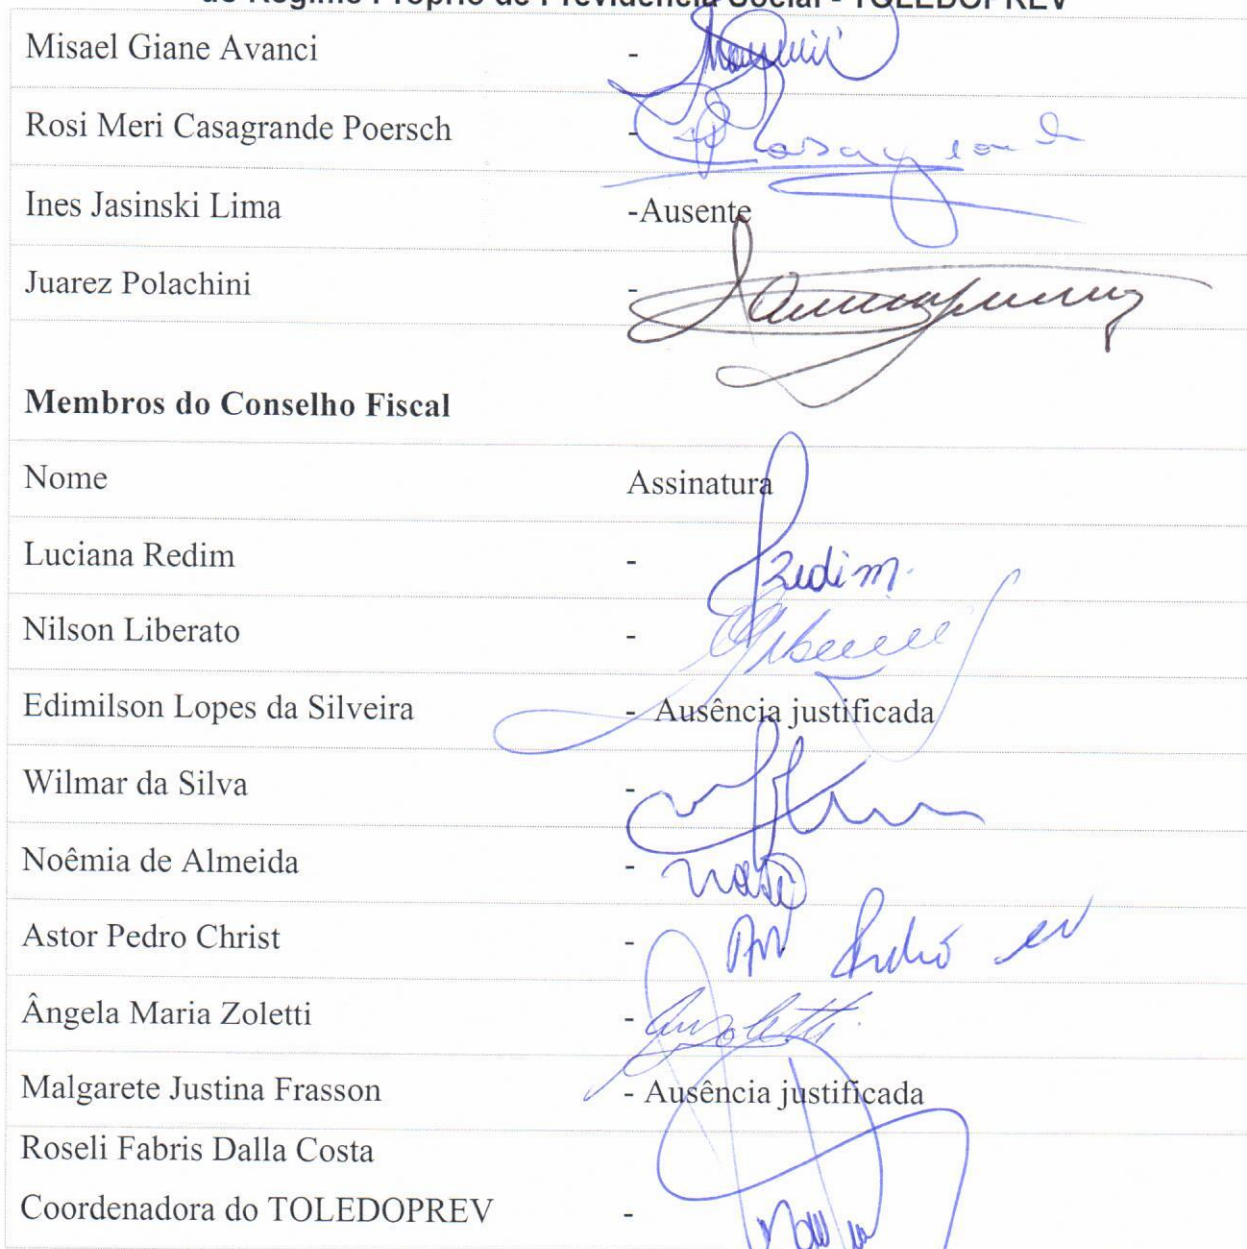 do Regime Próprio de Previdência Social - TOLEDOPREV
Misael Giane Avanci -
Rosi Meri Casagrande Poersch -
Ines Jasinski Lima -Ausente
Juarez Polachini -
Membros do Conselho Fiscal
Nome Assinatura
Luciana Redim - Redim.
Nilson Liberato -
Edimilson Lopes da Silveira - Ausência justificada
Wilmar da Silva -
Noêmia de Almeida -
Astor Pedro Christ -
Ângela Maria Zoletti -
Malgarete Justina Frasson - Ausência justificada
Roseli Fabris Dalla Costa
Coordenadora do TOLEDOPREV -